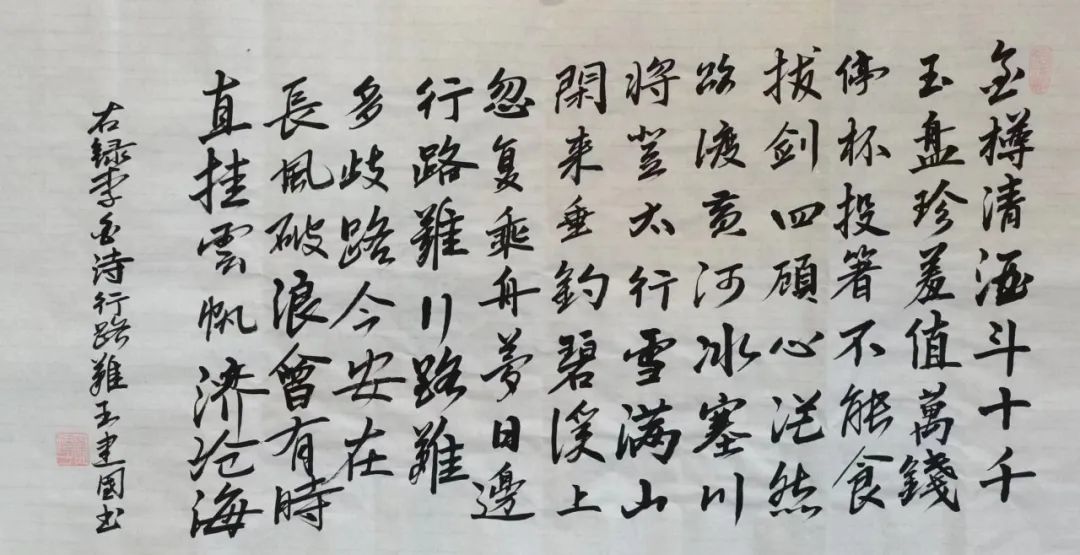 金樽清酒斗十千
玉盘珍羞值萬錢
停杯投箸不能食
拔剑四顾心茫然
欲渡黄河冰塞川
将登太行雪满山
閑来垂釣碧溪上
忽复乘舟夢日邊
行路難行路難
多歧路今安在
長風破浪會有時
直挂雲帆济沧海
右录李白诗行路難王建国书